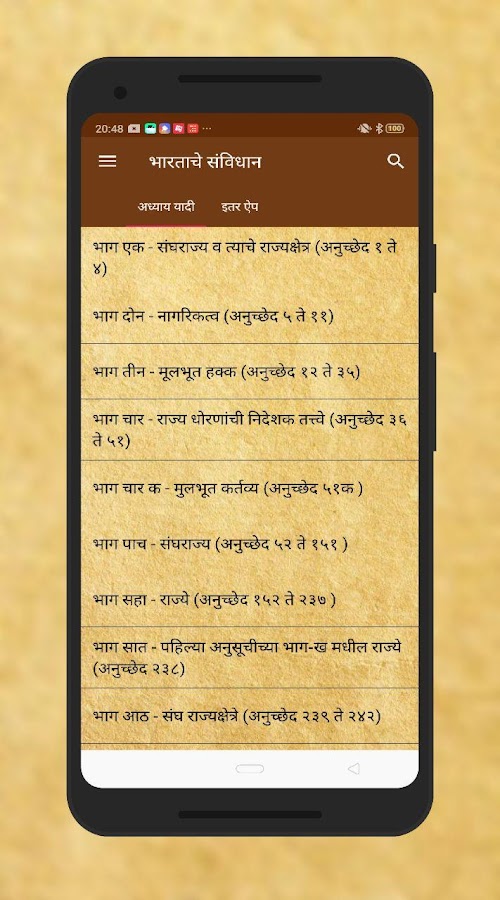 20:48
100
भारताचे संविधान
अध्याय यादी इतर ऐप
भाग एक - संघराज्य व त्याचे राज्यक्षेत्र (अनुच्छेद १ ते
४)
भाग दोन - नागरिकत्व (अनुच्छेद ५ ते ११)
भाग तीन - मूलभूत हक्क (अनुच्छेद १२ ते ३५)
भाग चार - राज्य धोरणांची निदेशक तत्त्वे (अनुच्छेद ३६
ते ५१)
भाग चार क - मुलभूत कर्तव्य (अनुच्छेद ५१क )
भाग पाच - संघराज्य (अनुच्छेद ५२ ते १५१ )
भाग सहा - राज्ये (अनुच्छेद १५२ ते २३७ )
भाग सात - पहिल्या अनुसूचीच्या भाग-ख मधील राज्ये
(अनुच्छेद २३८)
भाग आठ - संघ राज्यक्षेत्रे (अनुच्छेद २३९ ते २४२)